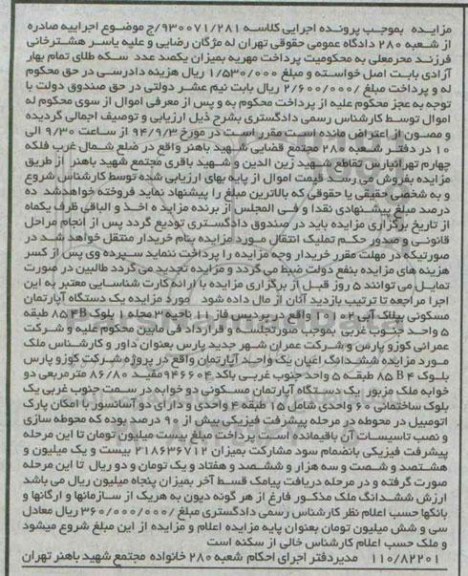 مزایده بموجب پرونده اجرایی کلاسه ۹۳۰۰۷۱/۲۸۱/ج موضوع اجراییه صادره
از شعبه ۲۸۰ دادگاه عمومی حقوقی تهران له مژگان رضایی و علیه یاسر هشترخانی
فرزند محرمعلی به محکومیت پرداخت مهریه بمیزان یکصد عدد سکه طلای تمام بهار
آزادی بابت اصل خواسته و مبلغ ۱/۵۳۰/۰۰۰ ریال هزینه دادرسی در حق محکوم
له و پرداخت مبلغ ۲/۶۰۰/۰۰۰/ ریال بابت نیم عشر دولتی در حق صندوق دولت با
توجه به عجز محکوم علیه از پرداخت محکوم به و پس از معرفی اموال از سوی محکوم له
اموال توسط کارشناس رسمی دادگستری بشرح ذیل ارزیابی و توصیف اجمالی گردیده
و مصون از اعتراض مانده است مقرر است در مورخ ۹۴/۹/۳ از ساعت ۹/۳۰ الی
۱۰ در دفتر شعبه ۲۸۰ مجتمع قضایی شهید باهنر واقع در ضلع شمال غرب فلکه
چهارم تهرانپارس تقاطع شهید زین الدین و شهید باقری مجتمع شهید باهنر از طریق
مزایده بفروش می رسد قیمت اموال از پایه بهای ارزیابی شده توسط کارشناس شروع
و به شخصی حقیقی یا حقوقی که بالاترین مبلغ را پیشنهاد نماید فروخته خواهدشد ده
درصد مبلغ پیشنهادی نقدا و فی المجلس از برنده مزایده اخذ و الباقی ظرف یکماه
از تاریخ برگزاری مزایده باید در صندوق دادگستری تودیع گردد پس از انجام مراحل
قانونی و صدور حکم تملیک انتقال مورد مزایده بنام خریدار منتقل خواهد شد در
صورتیکه در مهلت مقرر خریدار وجه مزایده را پرداخت ننماید سپرده وی پس از کسر
هزینه های مزایده بنفع دولت ضبط می گردد و مزایده تجدید می گردد طالبین در صورت
تمایل می توانند ۵ روز قبل از برگزاری مزایده با ارائه کارت شناسایی معتبر به این
اجرا مراجعه تا ترتیب بازدید آنان از مال داده شود مورد مزایده یک دستگاه آپارتمان
مسکونی بپلاک آبی ۱۱۰۲ واقع در پردیس فاز ۱۱ ناحیه ۳ محله ۱ بلوک ۸۵۴B طبقه
۵ واحد جنوب غربی بموجب صورتجلسه و قرارداد فی مابین محکوم علیه و شرکت
عمرانی کوزو پارس و شرکت عمران شهر جدید پارس بعنوان داور و کارشناس ملک
مورد مزایده ششدانگ اعیان یک واحد آپارتمان واقع در پروژه شرکت کوزو پارس
بلوک ۴ ۸۵B طبقه ۵ واحد جنوب غربی باکد ۹۴۶۶۰۴ مفید ۸۶/۸۰ متر مربعی دو
خوابه ملک مزبور یک دستگاه آپارتمان مسکونی دو خوابه در سمت جنوب غربی یک
بلوک ساختمانی ۶۰ واحدی شامل ۱۵ طبقه ۴ واحدی و دارای دو آسانسور با امکان پارک
اتومبیل در محوطه در مرحله پیشرفت فیزیکی بیش از ۹۰ درصد بوده که محوطه سازی
و نصب تاسیسات آن باقیمانده است پرداخت مبلغ بیست میلیون تومان تا این مرحله
پیشرفت فیزیکی بانضمام سود مشارکت بمیزان ۲۱۸۶۳۶۷۱۲ بیست و یک میلیون و
هشتصد و شصت و سه هزار و ششصد و هفتاد و یک تومان و دو ریال تا این مرحله
صورت گرفته و در مرحله دریافت پیامک قسط آخر بمیزان پنجاه میلیون ریال می باشد
ارزش ششدانگ ملک مذکور فارغ از هر گونه دیون به هریک از سازمانها و ارگانها و
بانکها حسب اعلام نظر کارشناس رسمی دادگستری مبلغ ۳۶۰/۰۰۰/۰۰۰/ ریال معادل
سی و شش میلیون تومان بعنوان پایه مزایده اعلام و مزایده از این مبلغ شروع میشود
و ملک حسب اعلام کارشناس خالی از سکنه است
۱۱۰/۸۲۲۰۱ مدیردفتر اجرای احکام شعبه ۲۸۰ خانواده مجتمع شهید باهنر تهران